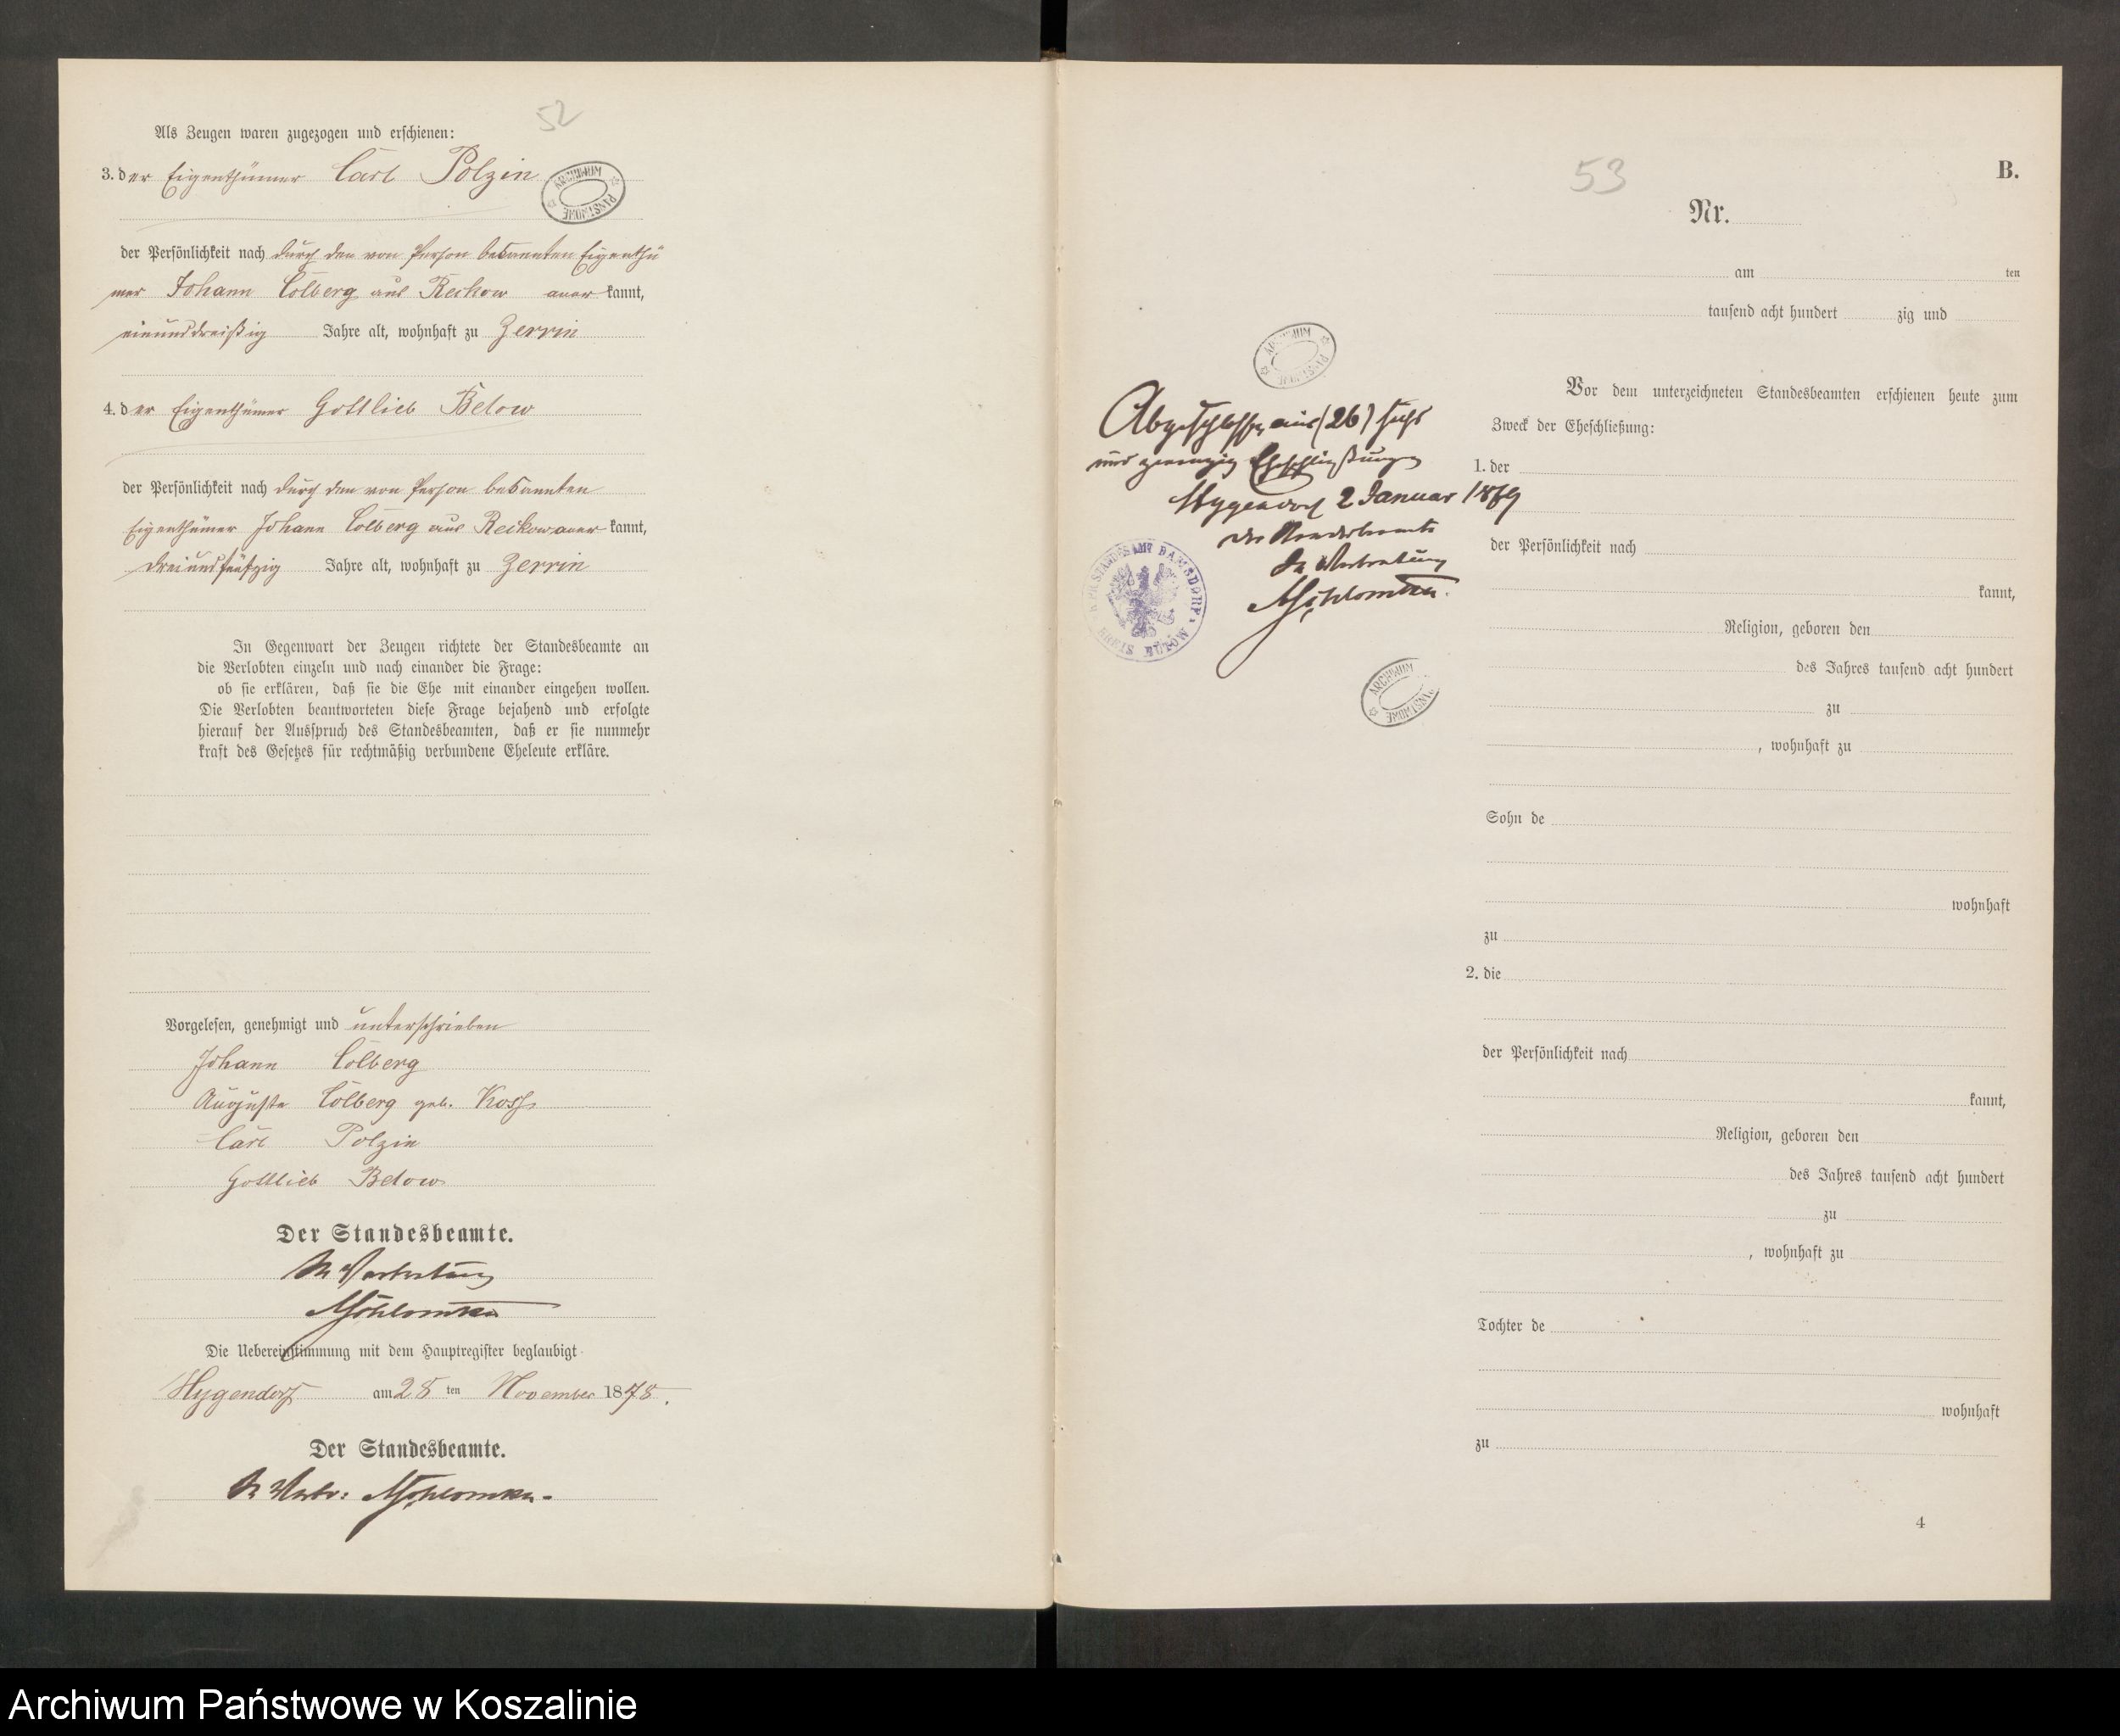 52
Als Zeugen waren zugezogen und erschienen:
3. der Eigenthümer Carl Polzin
ARCHIWUM PAŃSTWOWE
der Persönlichkeit nach durch den von Person bekannten Eigenthü
mer Johann Colberg aus Reckow aner kannt,
einunddreißig Jahre alt, wohnhaft zu Zerrin
4. der Eigenthümer Gottlieb Below
der Persönlichkeit nach durch den von Person bekannten
Eigenthümer Johann Colberg aus Reckow aner kannt,
dreiundfünfzig Jahre alt, wohnhaft zu Zerrin
In Gegenwart der Zeugen richtete der Standesbeamte an
die Verlobten einzeln und nach einander die Frage:
ob sie erklären, daß sie die Ehe mit einander eingehen wollen.
Die Verlobten beantworteten diese Frage bejahend und erfolgte
hierauf der Ausspruch des Standesbeamten, daß er sie nunmehr
kraft des Gesetzes für rechtmäßig verbundene Eheleute erkläre.
Vorgelesen, genehmigt und unterschrieben
Johann Colberg
Auguste Colberg geb. Koss
Carl Polzin
Gottlieb Below
Der Standesbeamte.
In Vertretung
Die Uebereinstimmung mit dem Hauptregister beglaubigt
Hygendorf am 28 ten November 1878.
Der Standesbeamte.
In Vertr:
53
B.
Nr.
am ten
tausend acht hundert zig und
ARCHIWUM PAŃSTWOWE
Abgeschlossen mit (26) sechs
und zwanzig Eheschließungen
Hygendorf 2 Januar 1879
Der Standesbeamte
In Vertretung
STANDESAMT
ARCHIWUM PAŃSTWOWE
Vor dem unterzeichneten Standesbeamten erschienen heute zum
Zweck der Eheschließung:
1. der
der Persönlichkeit nach
kannt,
Religion, geboren den
des Jahres tausend acht hundert
zu
, wohnhaft zu
Sohn de
wohnhaft
zu
2. die
der Persönlichkeit nach
kannt,
Religion, geboren den
des Jahres tausend acht hundert
zu
, wohnhaft zu
Tochter de
wohnhaft
zu
4
Archiwum Państwowe w Koszalinie